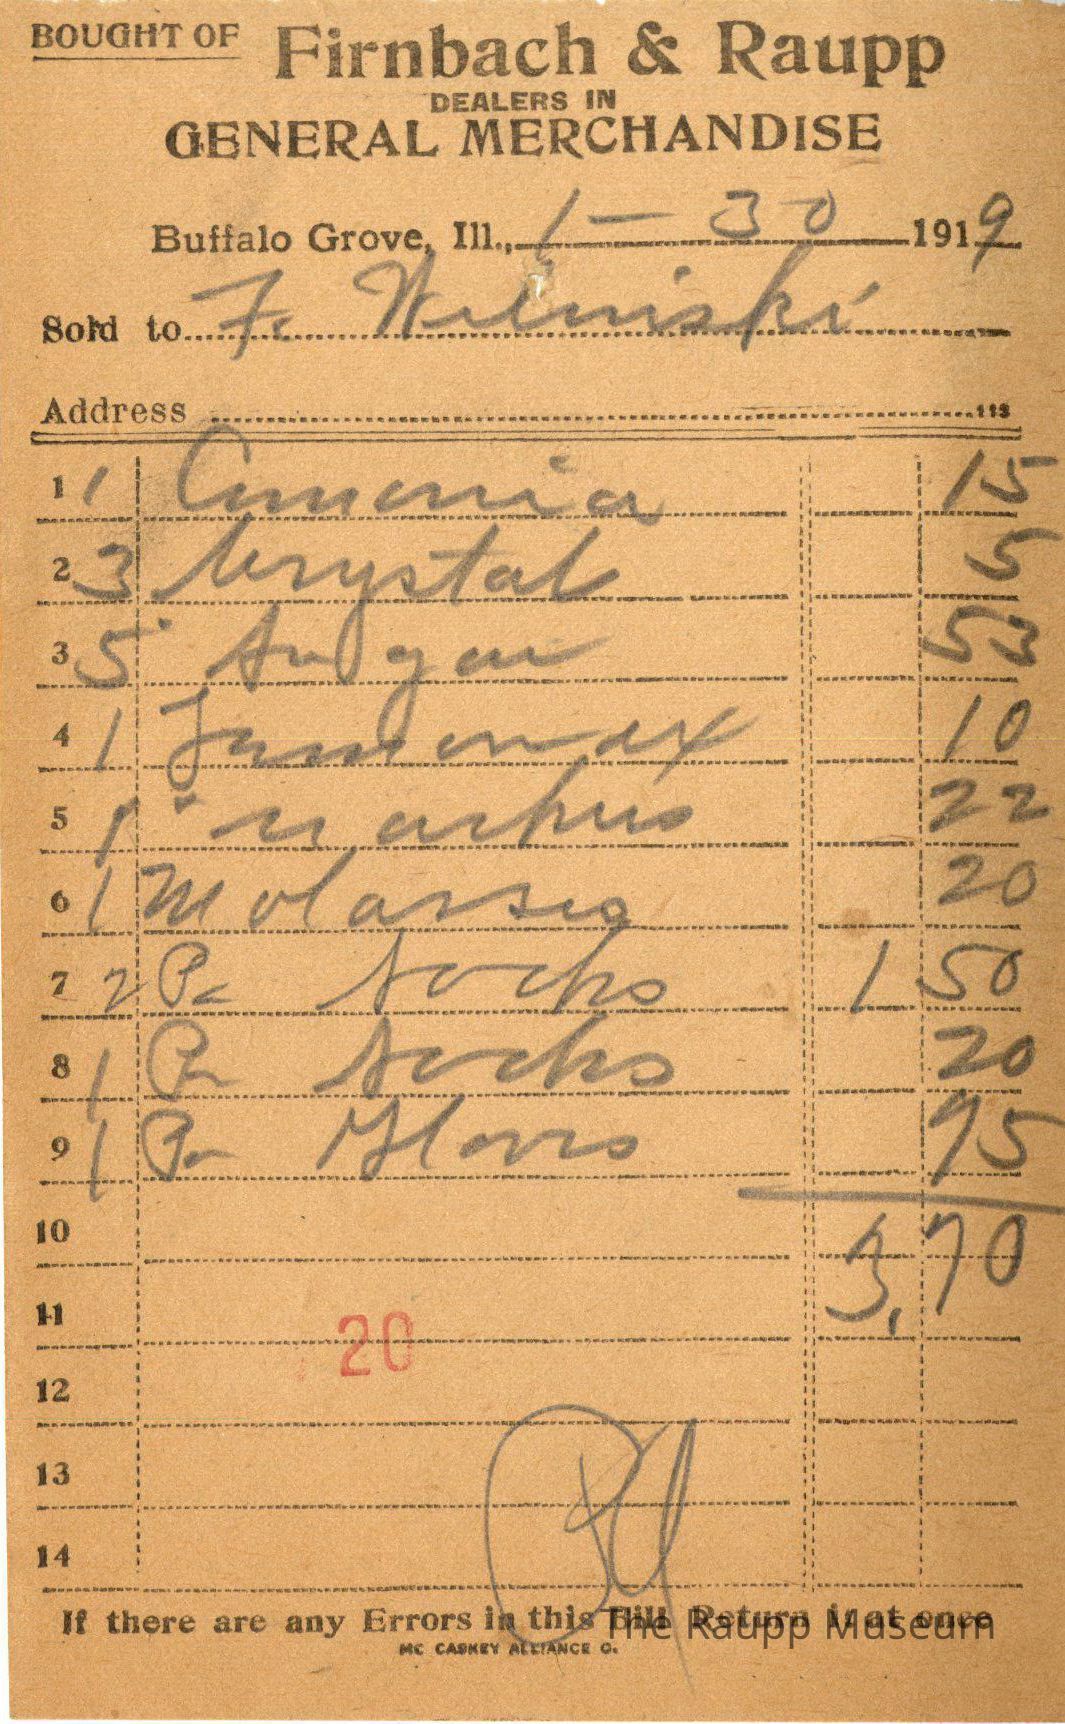 BOUGHT OF Firnbach & Raupp
DEALERS IN
GENERAL MERCHANDISE
Buffalo Grove, Ill., 1 - 30 1919
Sold to F.
Address
1 1 Amonia 15
2 3 Crystal 5
3 5 Sugar 53
4 1 10
5 1 22
6 1 Molasses 20
7 2 Pr Socks 1 50
8 1 Pr Socks 20
9 1 Pr Gloves 75
10 3.70
11
20
12
13
14
If there are any Errors in this Bill Return it at once
The Raupp Museum
MC CASKEY ALLIANCE O.